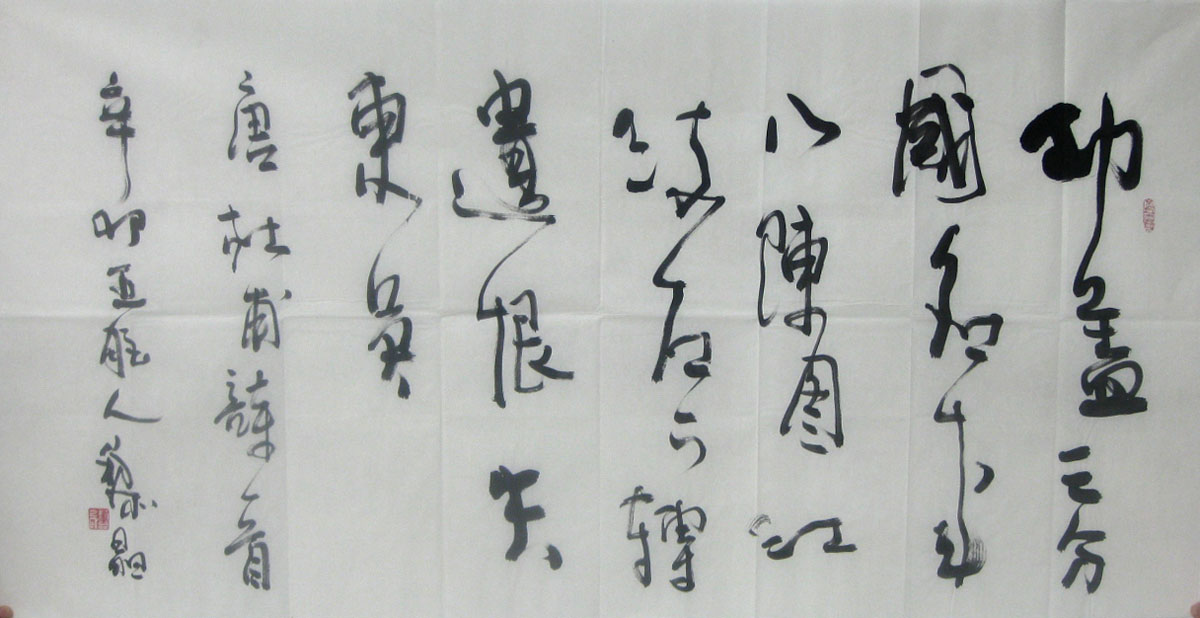 功蓋三分
國名成
八陳圖江
流石不轉
遺恨失
東吳
唐杜甫詩一首
辛卯人黎晶